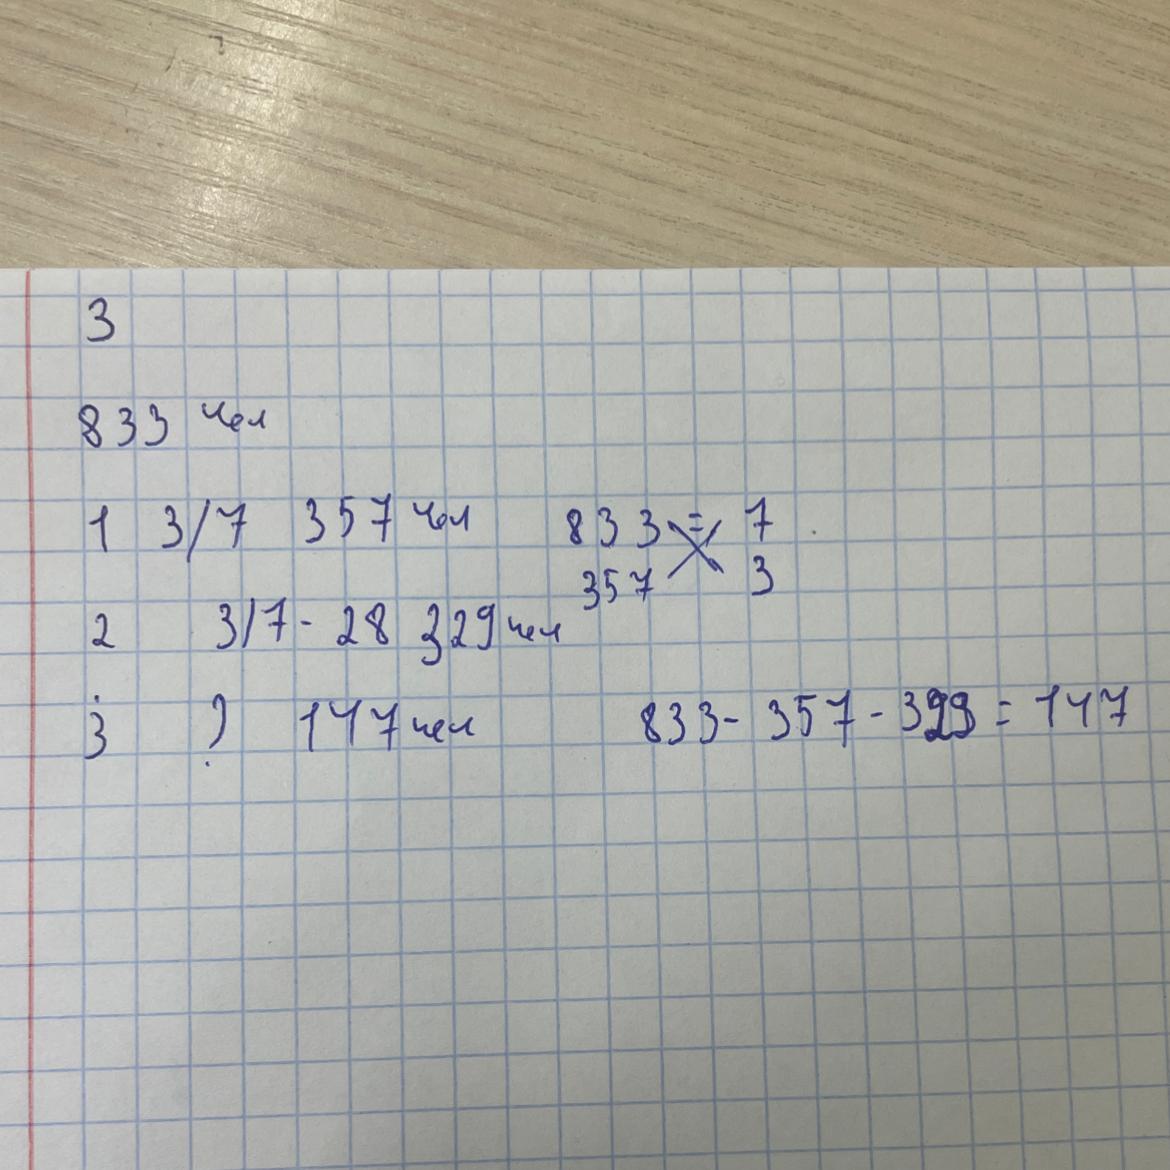 3
833 чел
1 3/7 357 чел 833 = 7
357 3
2 3/7 - 28 329 чел
3 ? 147 чел 833 - 357 - 329 = 147